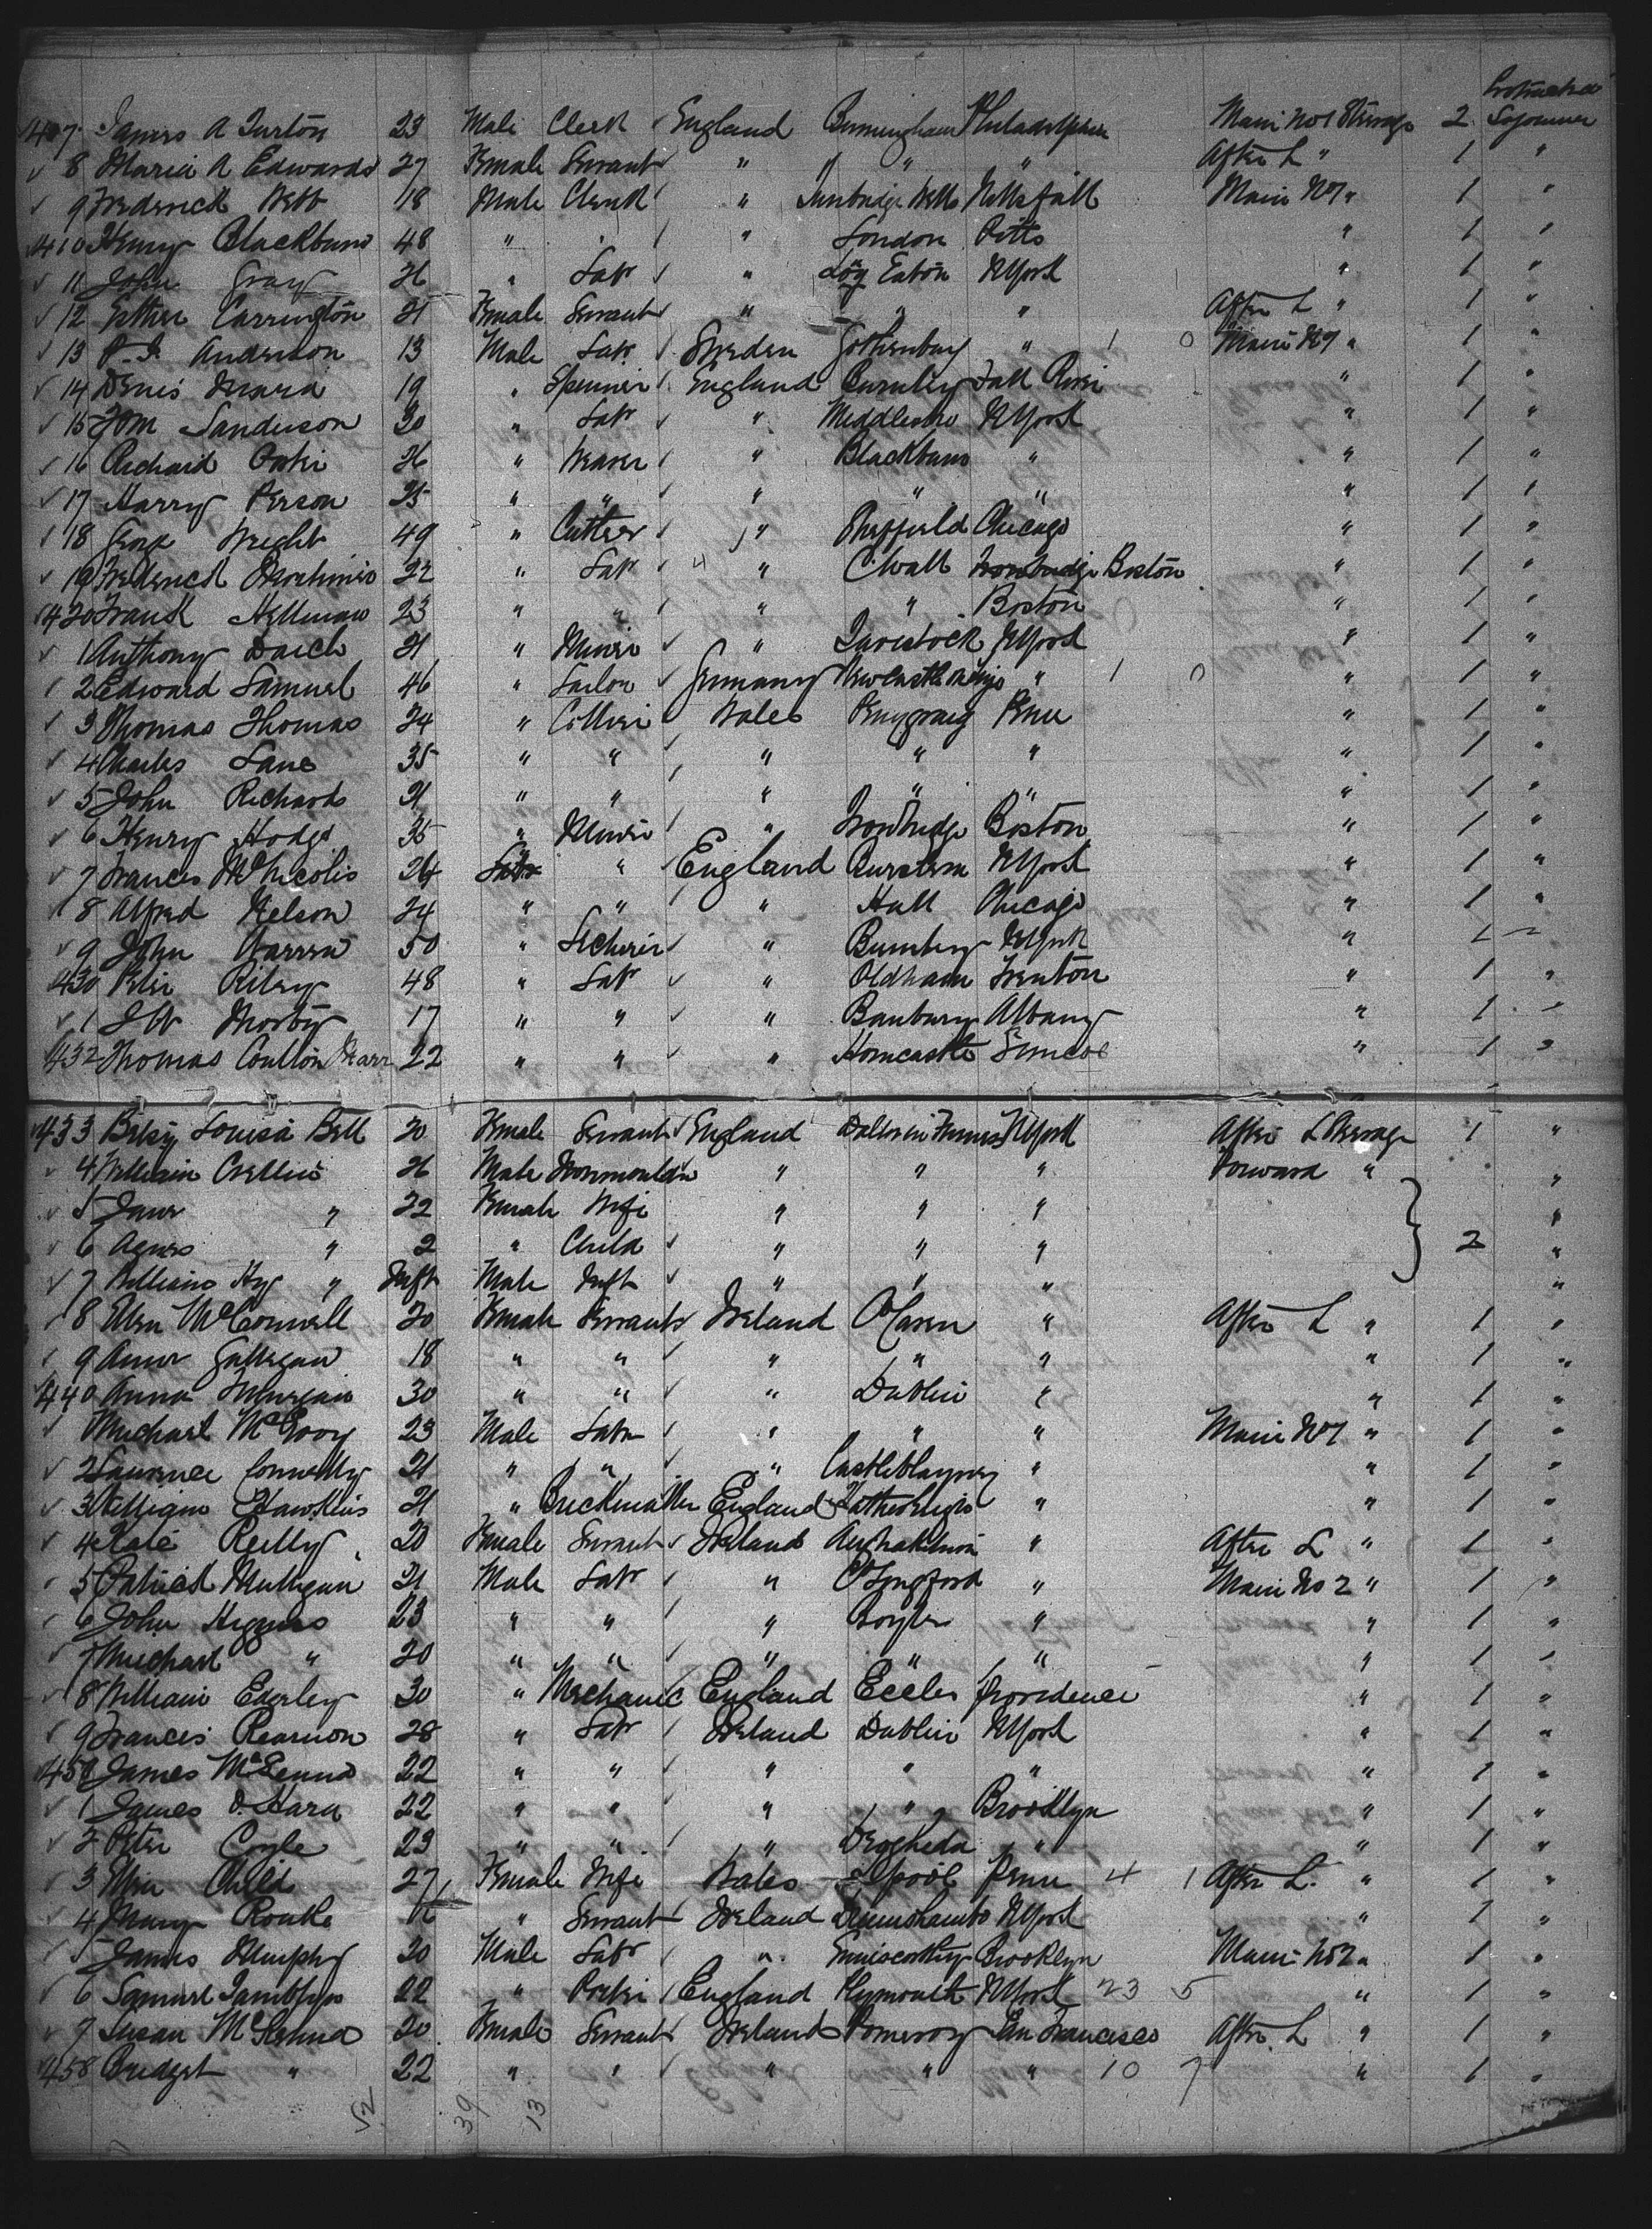 Protracted
407 James A Turton 23 Male Clerk England Birmingham Philadelphia Main No 1 Steerage 2 Sojourner
8 Maria A Edwards 27 Female Servant " " " After L " 1 "
9 Frederick Webb 18 Male Clerk " Tunbridge Wells Main No 1 " 1 "
410 Henry Blackburn 48 " " London Pitts " 1 "
11 John Gray 26 " Labr " Long Eaton NYork " 1 "
12 Esther Carrington 21 Female Servant " " " After L " 1 "
13 Anderson 13 Male Labr Sweden Gothenburg " 1 0 Main No 1 " 1 "
14 Denis 19 " Spinner England Burnley Fall River " 1 "
15 Tom Sanderson 30 " Labr " Middlesbro NYork " 1 "
16 Richard 26 " Weaver " Blackburn " " 1 "
17 Harry Person 25 " " " " " " 1 "
18 George Wright 49 " Cutler " Sheffield Chicago " 1 "
19 Frederick 22 " Labr 4 " C.Wall Boston " 1 "
420 Frank Hellman 23 " " " " Boston " 1 "
1 Anthony 21 " Miner " Tavistock NYork " 1 "
2 Edward Samuel 46 " Sailor Germany Newcastle " 1 0 " 1 "
3 Thomas Thomas 24 " Collier Wales Penygraig Penn " 1 "
4 Charles Lane 35 " " " " " " 1 "
5 John Richards 21 " " " " " " 1 "
6 Henry Hodge 35 " Miner " Boston " 1 "
7 Frances McNicolis 24 " England NYork " 1 "
8 Alfred Nelson 24 " " " Hull Chicago " 1 "
9 John Warren 50 " " NYork " 1 "
430 Peter Riley 48 " Labr " Oldham Trenton " 1 "
1 J W Mosby 17 " " " Banbury Albany " 1 "
432 Thomas Coulton Marr 22 " " " Horncastle Simcoe " 1 "
433 Betsy Louisa Bell 20 Female Servant England Dalton in Furness NYork After L Steerage 1 "
4 William Crellin 26 Male Ironmoulder " " " Forward " "
5 Jane " 22 Female Wife " " " "
6 Agnes " 2 " Child " " " 2 "
7 William Hy " Inft Male Inft " " " "
8 Ellen McConnell 20 Female Servant Ireland Cavan " After L " 1 "
9 Anne Galligan 18 " " " " " " 1 "
440 Anna 30 " " " Dublin " " 1 "
Michael McEvoy 23 Male Labr " " " Main No 1 " 1 "
2 Laurence Connelly 21 " " " Castleblayney " " 1 "
3 William Hawkins 21 " England " " 1 "
4 Kate Reilly 20 Female Servant Ireland " After L " 1 "
5 Patrick Mulligan 21 Male Labr " Co Longford " Main No 2 " 1 "
6 John Higgins 23 " " " Boyle " " 1 "
7 Michael " 20 " " " " " " 1 "
8 William Ederley 30 " Mechanic England Eccles Providence " 1 "
9 Frances 28 " Labr Ireland Dublin NYork " 1 "
450 James McKenna 22 " " " " " " 1 "
1 James O'Hara 22 " " " " Brooklyn " 1 "
2 Peter Coyle 23 " " " Drogheda " " 1 "
3 Childs 27 Female Wife Wales L pool Penn 4 1 After L " 1 "
4 Mary Rourke 16 " Servant Ireland Drumshambo NYork " 1 "
5 James Murphy 20 Male Labr " Enniscorthy Brooklyn Main No 2 " 1 "
6 Samuel 22 " Porter England Plymouth NYork 23 5 " 1 "
7 Susan McKenna 20 Female Servant Ireland Pomeroy San Francisco After L " 1 "
458 Bridget " 22 " " " " " 10 7 " 1 "
52 39 13